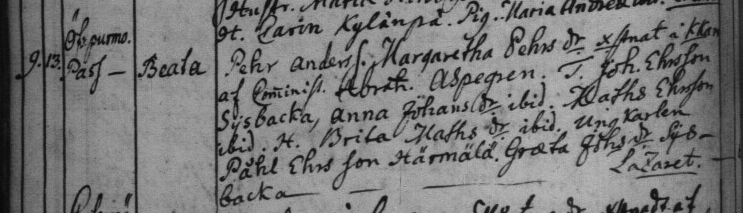 H. Carin Kylänpä. Pig. Maria Andersdr.
Öf. purmo.
9. 13. Pass — Beata
Pehr Anderss. Margaretha Pehrs dr xstnat i kkan
af Com̄inist. Abrah. Aspegren. T. Joh. Ehrsson
Sysbacka, Anna Johans dr ibid. Maths Ehrsson
ibid. H. Brita Maths dr ibid. Ungkarlen
Påhl Ehrs son Härmälä. Græta Johs dr Sys-
backa — Lazaret. —